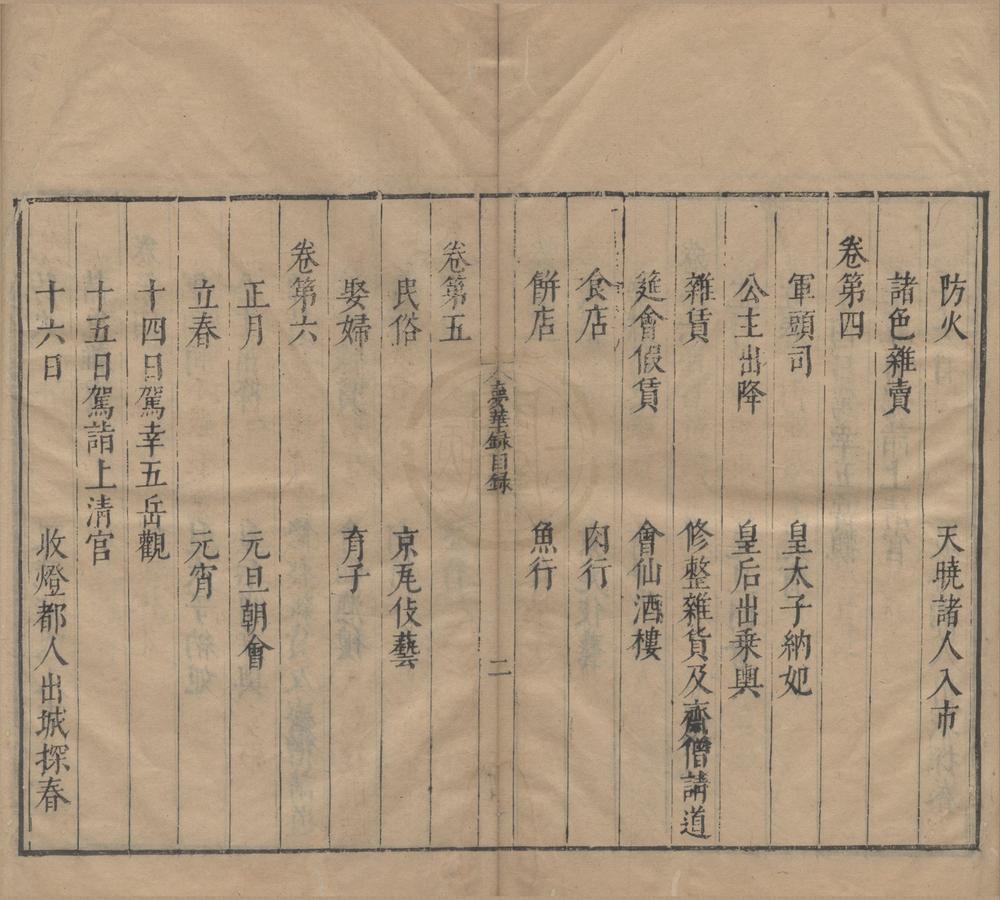 防火　天曉諸人入市
諸色雜賣
卷第四
軍頭司　皇太子納妃
公主出降　皇后出乘輿
雜賃　修整雜貨及齋僧請道
筵會假賃　會仙酒樓
食店　肉行
餅店　魚行
夢華錄目錄　二
卷第五
民俗　京瓦伎藝
娶婦　育子
卷第六
正月　元旦朝會
立春　元宵
十四日駕幸五岳觀
十五日駕詣上清宮
十六日　收燈都人出城探春